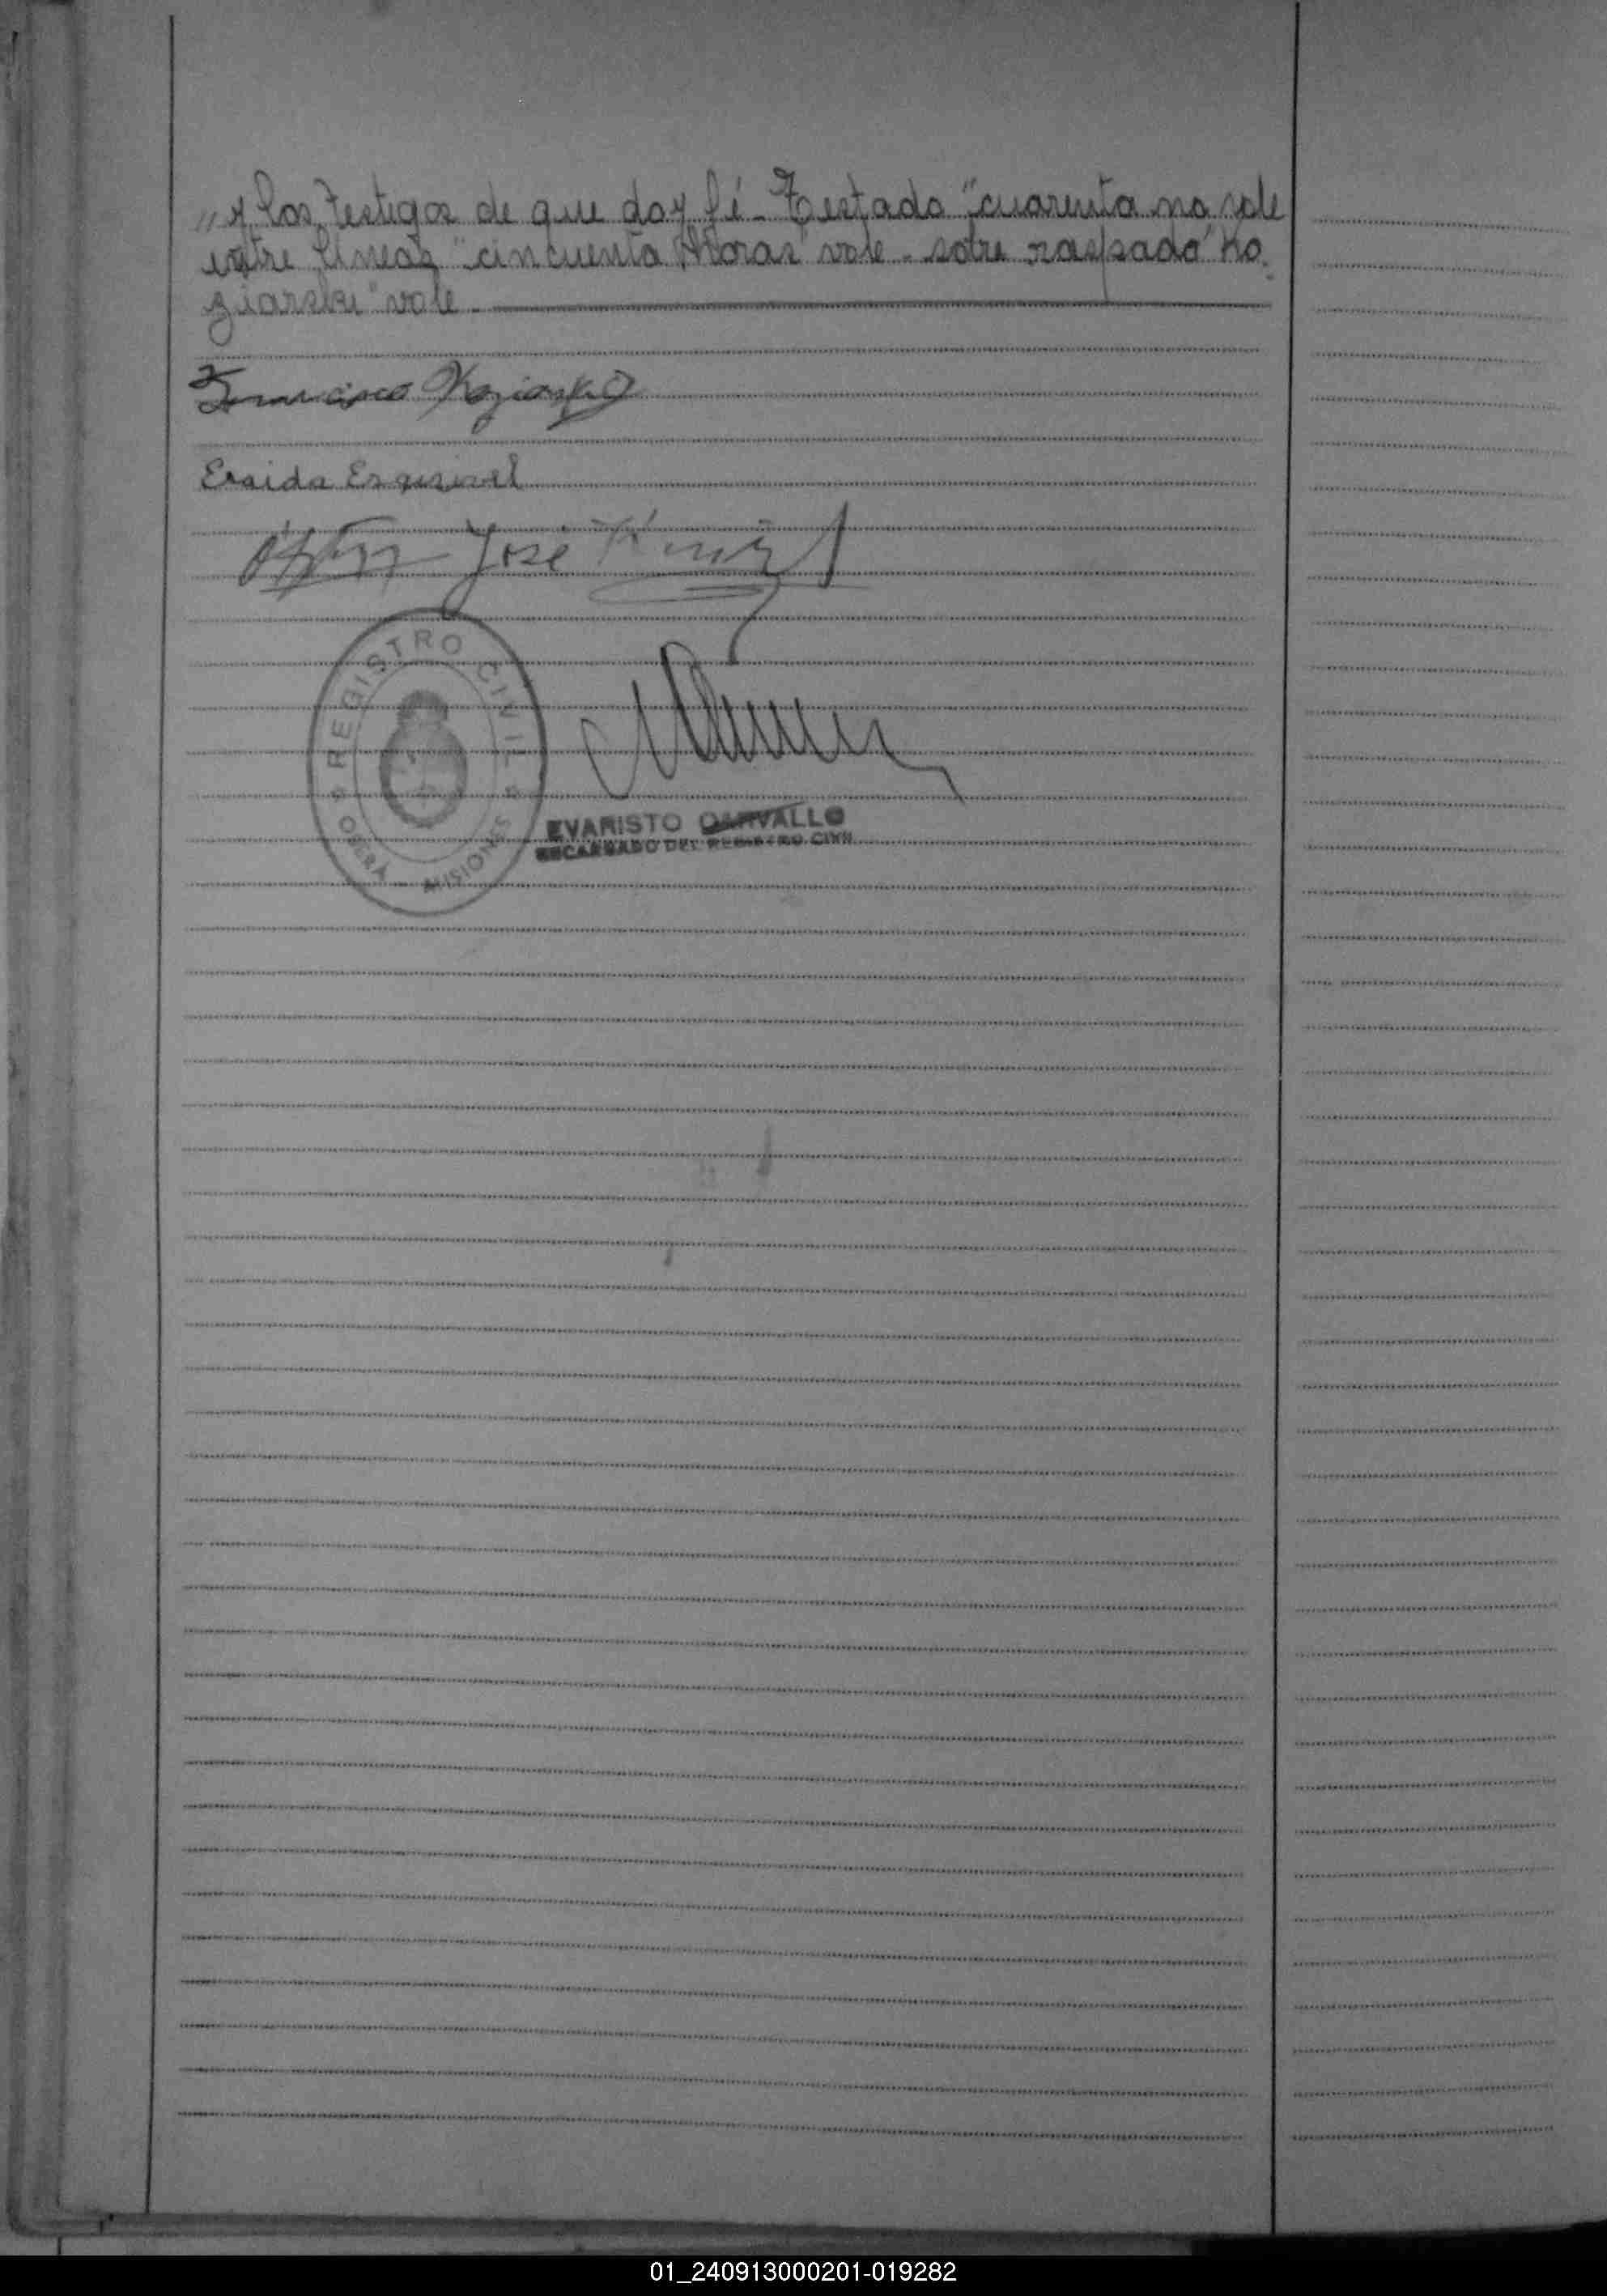 „ y los testigos de que doy fé - Testado "cuarenta no vale
entre lineas "cincuenta Moras" vale - sobre raspado "Ko-
ziarski" vale
Francisco Koziarski
Eraida Esquivel
José
REGISTRO CIVIL
OBERA - MISIONES
EVARISTO CARVALLO
ENCARGADO DEL REGISTRO CIVIL
01_240913000201-019282